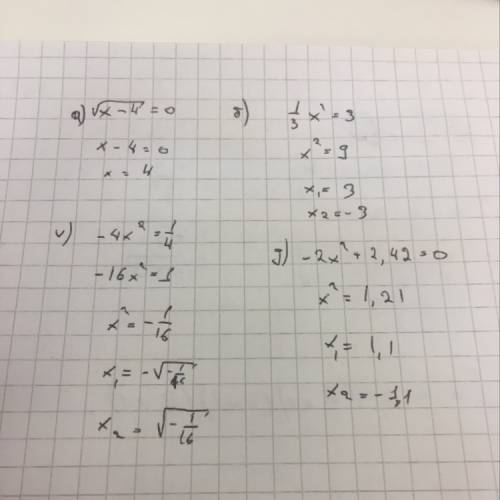 а) √x-4 = 0
x - 4 = 0
x = 4
б) 1/3 x² = 3
x² = 9
x₁ = 3
x₂ = -3
v) -4x² = 1/4
-16x² = 1
x² = -1/16
x₁ = -√-1/16
x₂ = √-1/16
g) -2x² + 2,42 = 0
x² = 1,21
x₁ = 1,1
x₂ = -1,1